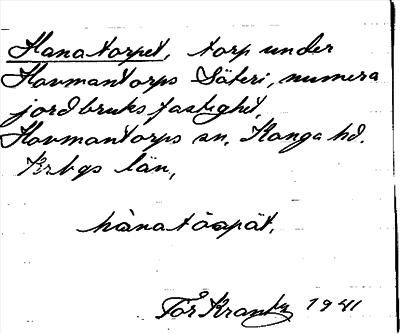 Hanatorpet, torp under
Hovmantorps Säteri, numera
jordbruksfastighet,
Hovmantorps sn. Konga hd.
Krbgs län,
hànatåapät.
Tor Krantz 1941